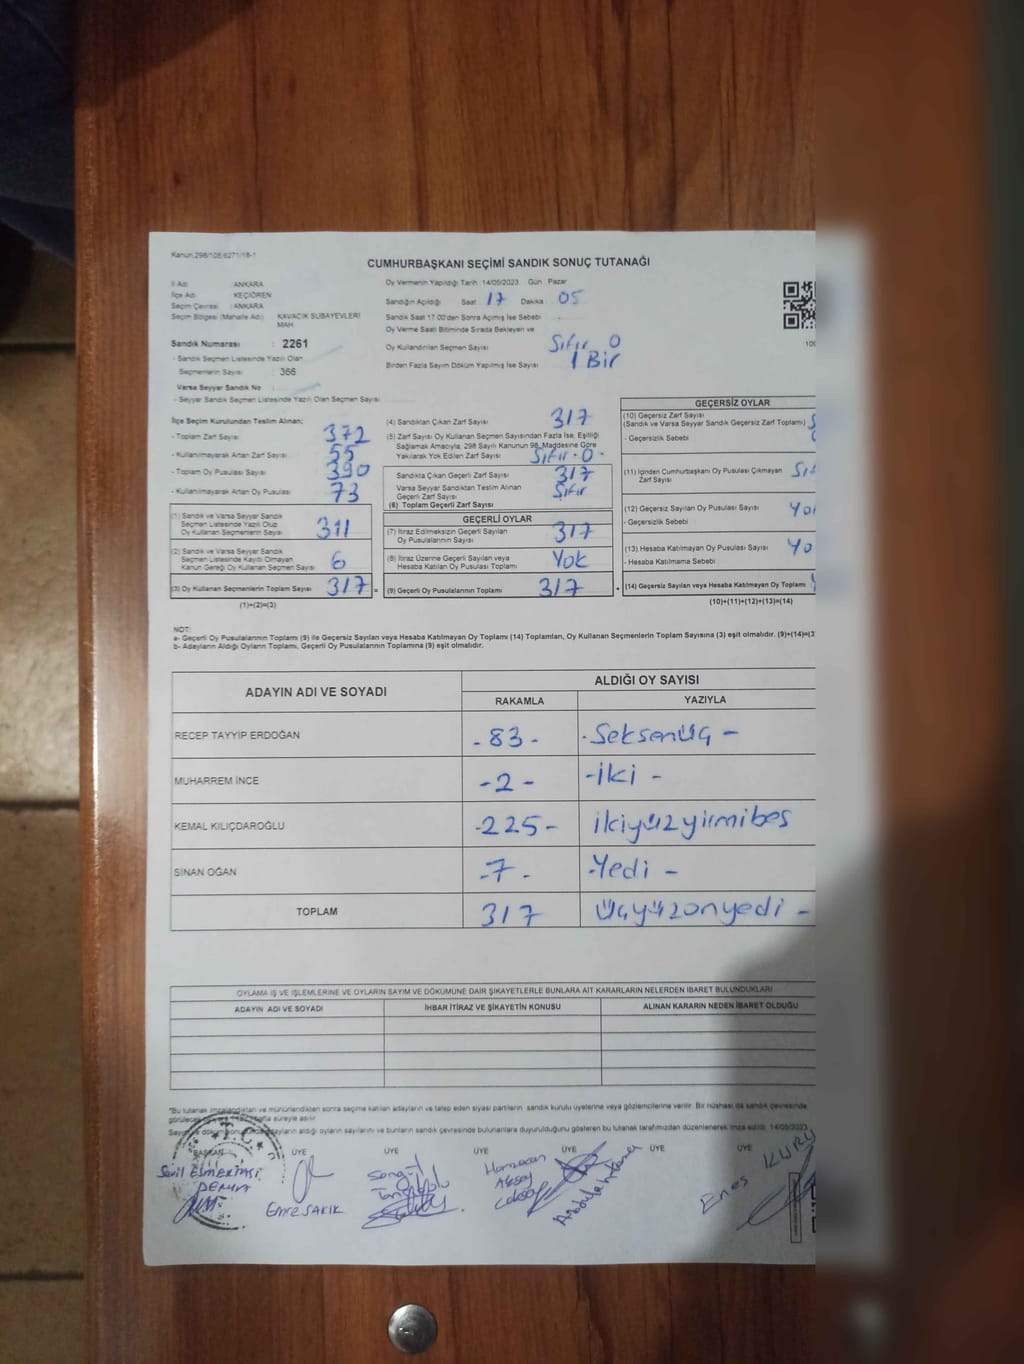 Kanun.298/105.6271/18-1
CUMHURBAŞKANI SEÇİMİ SANDIK SONUÇ TUTANAĞI
İl Adı ANKARA
İlçe Adı KEÇİÖREN
Seçim Çevresi : ANKARA
Seçim Bölgesi (Mahalle Adı) : KAVACIK SUBAYEVLERİ MAH
Sandık Numarası : 2261
- Sandık Seçmen Listesinde Yazılı Olan
Seçmenlerin Sayısı : 366
Varsa Seyyar Sandık No :
- Seyyar Sandık Seçmen Listesinde Yazılı Olan Seçmen Sayısı
Oy Vermenin Yapıldığı Tarih 14/05/2023 Gün : Pazar
Sandığın Açıldığı Saat 17 Dakika 05
Sandık Saat 17.00'den Sonra Açılmış İse Sebebi
Oy Verme Saati Bitiminde Sırada Bekleyen ve
Oy Kullandırılan Seçmen Sayısı Sıfır 0
Birden Fazla Sayım Döküm Yapılmış İse Sayısı 1 Bir
İlçe Seçim Kurulundan Teslim Alınan;
- Toplam Zarf Sayısı 372
- Kullanılmayarak Artan Zarf Sayısı 55
- Toplam Oy Pusulası Sayısı 390
- Kullanılmayarak Artan Oy Pusulası 73
(1) Sandık ve Varsa Seyyar Sandık
Seçmen Listesinde Yazılı Olup
Oy Kullanan Seçmenlerin Sayısı 311
(2) Sandık ve Varsa Seyyar Sandık
Seçmen Listesinde Kayıtlı Olmayan
Kanun Gereği Oy Kullanan Seçmen Sayısı 6
(3) Oy Kullanan Seçmenlerin Toplam Sayısı 317 =
(1)+(2)=(3)
(4) Sandıktan Çıkan Zarf Sayısı 317
(5) Zarf Sayısı Oy Kullanan Seçmen Sayısından Fazla İse, Eşitliği
Sağlamak Amacıyla, 298 Sayılı Kanunun 98. Maddesine Göre
Yakılarak Yok Edilen Zarf Sayısı Sıfır - 0 -
Sandıkta Çıkan Geçerli Zarf Sayısı 317
Varsa Seyyar Sandıktan Teslim Alınan
Geçerli Zarf Sayısı Sıfır
(6) Toplam Geçerli Zarf Sayısı
GEÇERLİ OYLAR
(7) İtiraz Edilmeksizin Geçerli Sayılan
Oy Pusulalarının Sayısı 317
(8) İtiraz Üzerine Geçerli Sayılan veya
Hesaba Katılan Oy Pusulası Toplamı Yok
(9) Geçerli Oy Pusulalarının Toplamı 317 +
GEÇERSİZ OYLAR
(10) Geçersiz Zarf Sayısı
(Sandık ve Varsa Seyyar Sandık Geçersiz Zarf Toplamı)
- Geçersizlik Sebebi
(11) İçinden Cumhurbaşkanı Oy Pusulası Çıkmayan
Zarf Sayısı
(12) Geçersiz Sayılan Oy Pusulası Sayısı
- Geçersizlik Sebebi
(13) Hesaba Katılmayan Oy Pusulası Sayısı
- Hesaba Katılmama Sebebi
(14) Geçersiz Sayılan veya Hesaba Katılmayan Oy Toplamı
(10)+(11)+(12)+(13)=(14)
NOT:
a- Geçerli Oy Pusulalarının Toplamı (9) ile Geçersiz Sayılan veya Hesaba Katılmayan Oy Toplamı (14) Toplamları, Oy Kullanan Seçmenlerin Toplam Sayısına (3) eşit olmalıdır. (9)+(14)=(3
b- Adayların Aldığı Oyların Toplamı, Geçerli Oy Pusulalarının Toplamına (9) eşit olmalıdır.
ADAYIN ADI VE SOYADI ALDIĞI OY SAYISI
RAKAMLA YAZIYLA
RECEP TAYYİP ERDOĞAN - 83 - - Seksenüç -
MUHARREM İNCE - 2 - - iki -
KEMAL KILIÇDAROĞLU - 225 - ikiyüzyirmibeş
SİNAN OĞAN - 7 - - Yedi -
TOPLAM 317 üçyüzonyedi -
OYLAMA İŞ VE İŞLEMLERİNE VE OYLARIN SAYIM VE DÖKÜMÜNE DAİR ŞİKAYETLERLE BUNLARA AİT KARARLARIN NELERDEN İBARET BULUNDUKLARI
ADAYIN ADI VE SOYADI İHBAR İTİRAZ VE ŞİKAYETİN KONUSU ALINAN KARARIN NEDEN İBARET OLDUĞU
*Bu tutanak imzalandıktan ve mühürlendikten sonra seçime katılan adayların ve talep eden siyasi partilerin sandık kurulu üyelerine veya gözlemcilerine verilir. Bir nüshası da sandık çevresinde
süreyle asılır
adayların aldığı oyların sayılarını ve bunların sandık çevresinde bulunanlara duyurulduğunu gösteren bu tutanak tarafımızdan düzenlenerek imza edildi. 14/05/2023
BAŞKAN ÜYE ÜYE ÜYE ÜYE ÜYE ÜYE
T.C.
Emre SAKIK
Enes KURU